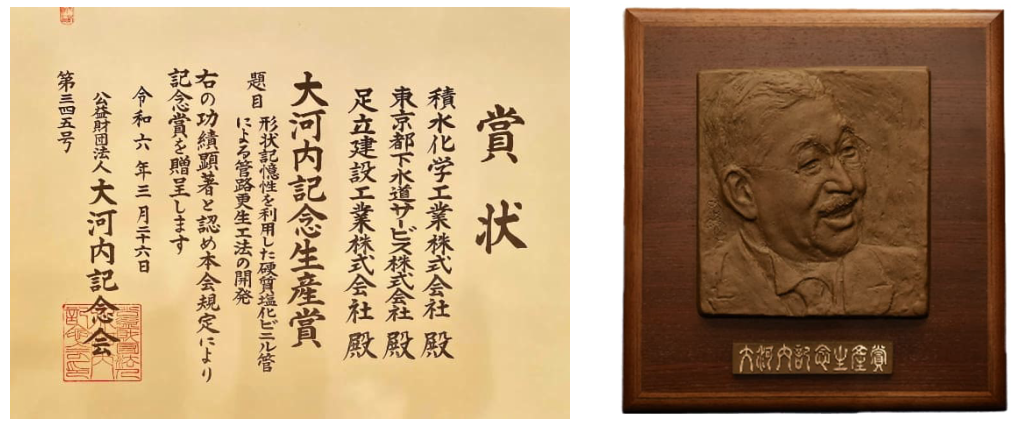 賞状
積水化学工業株式会社 殿
東京都下水道サービス株式会社 殿
足立建設工業株式会社 殿
大河内記念生産賞
題目 形状記憶性を利用した硬質塩化ビニル管
による管路更生工法の開発
右の功績顕著と認め本会規定により
記念賞を贈呈します
令和六年三月二十六日
公益財団法人 大河内記念会
第三四五号
大河内記念生産賞